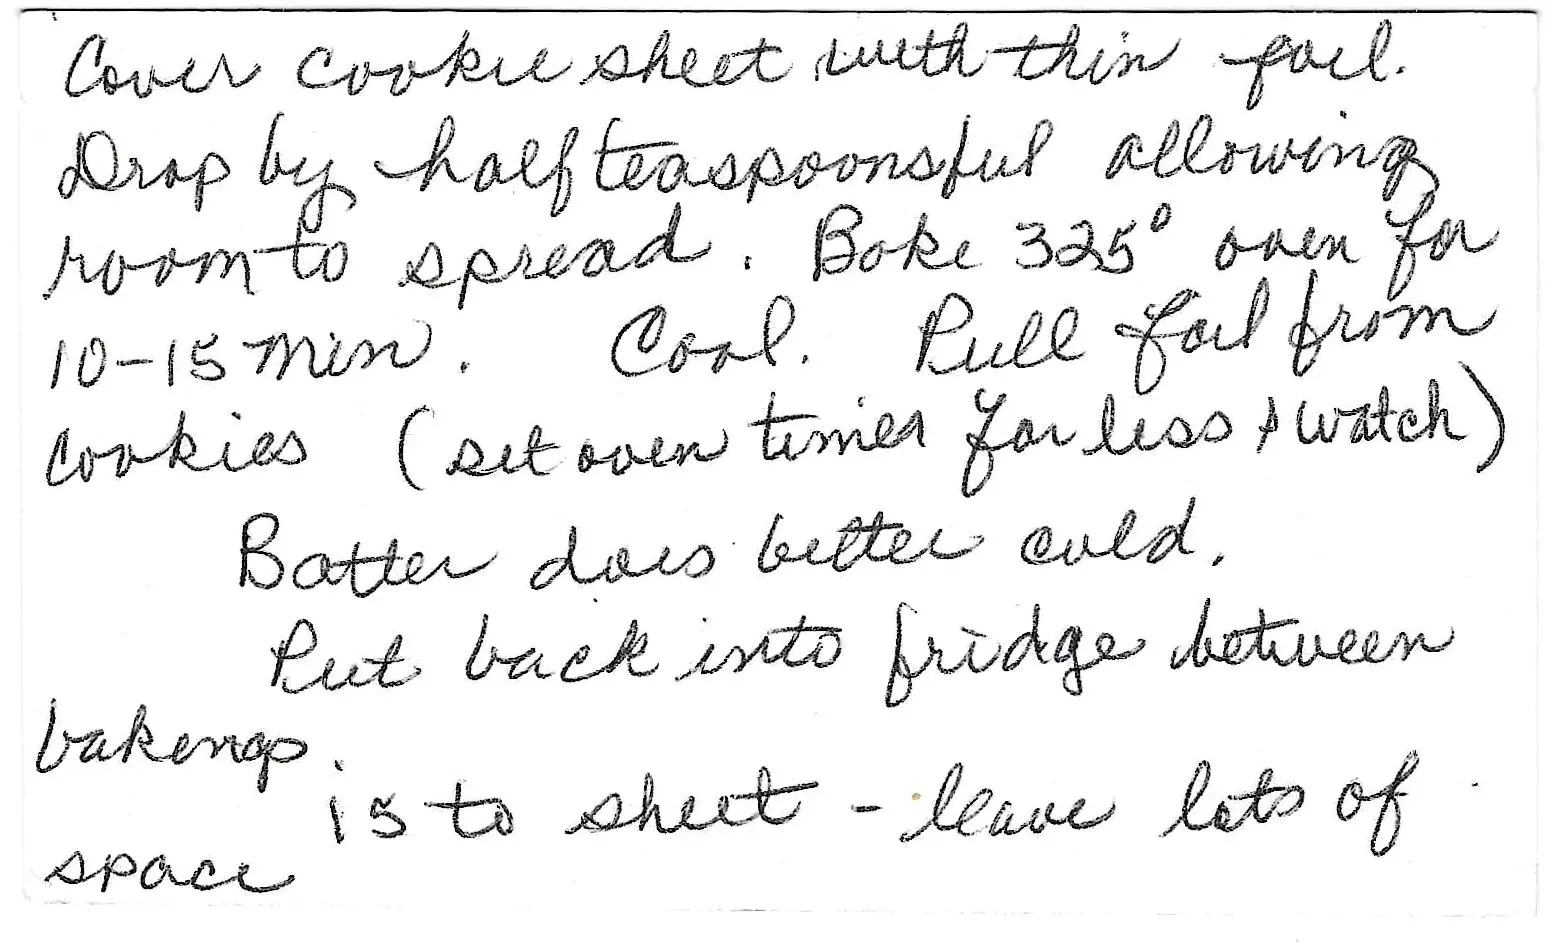 Cover cookie sheet with thin foil.
Drop by half teaspoonsful allowing
room to spread. Bake 325° oven for
10-15 min. Cool. Pull foil from
cookies (set oven timer for less & watch)
Batter does better cold.
Put back into fridge between
bakings.
15 to sheet - leave lots of
space